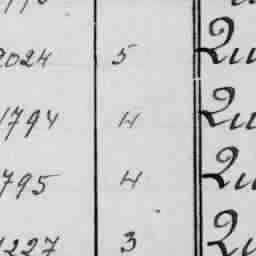 2024 5 Qu
1794 4 Qu
795 4 Qu
1227 3 Qu